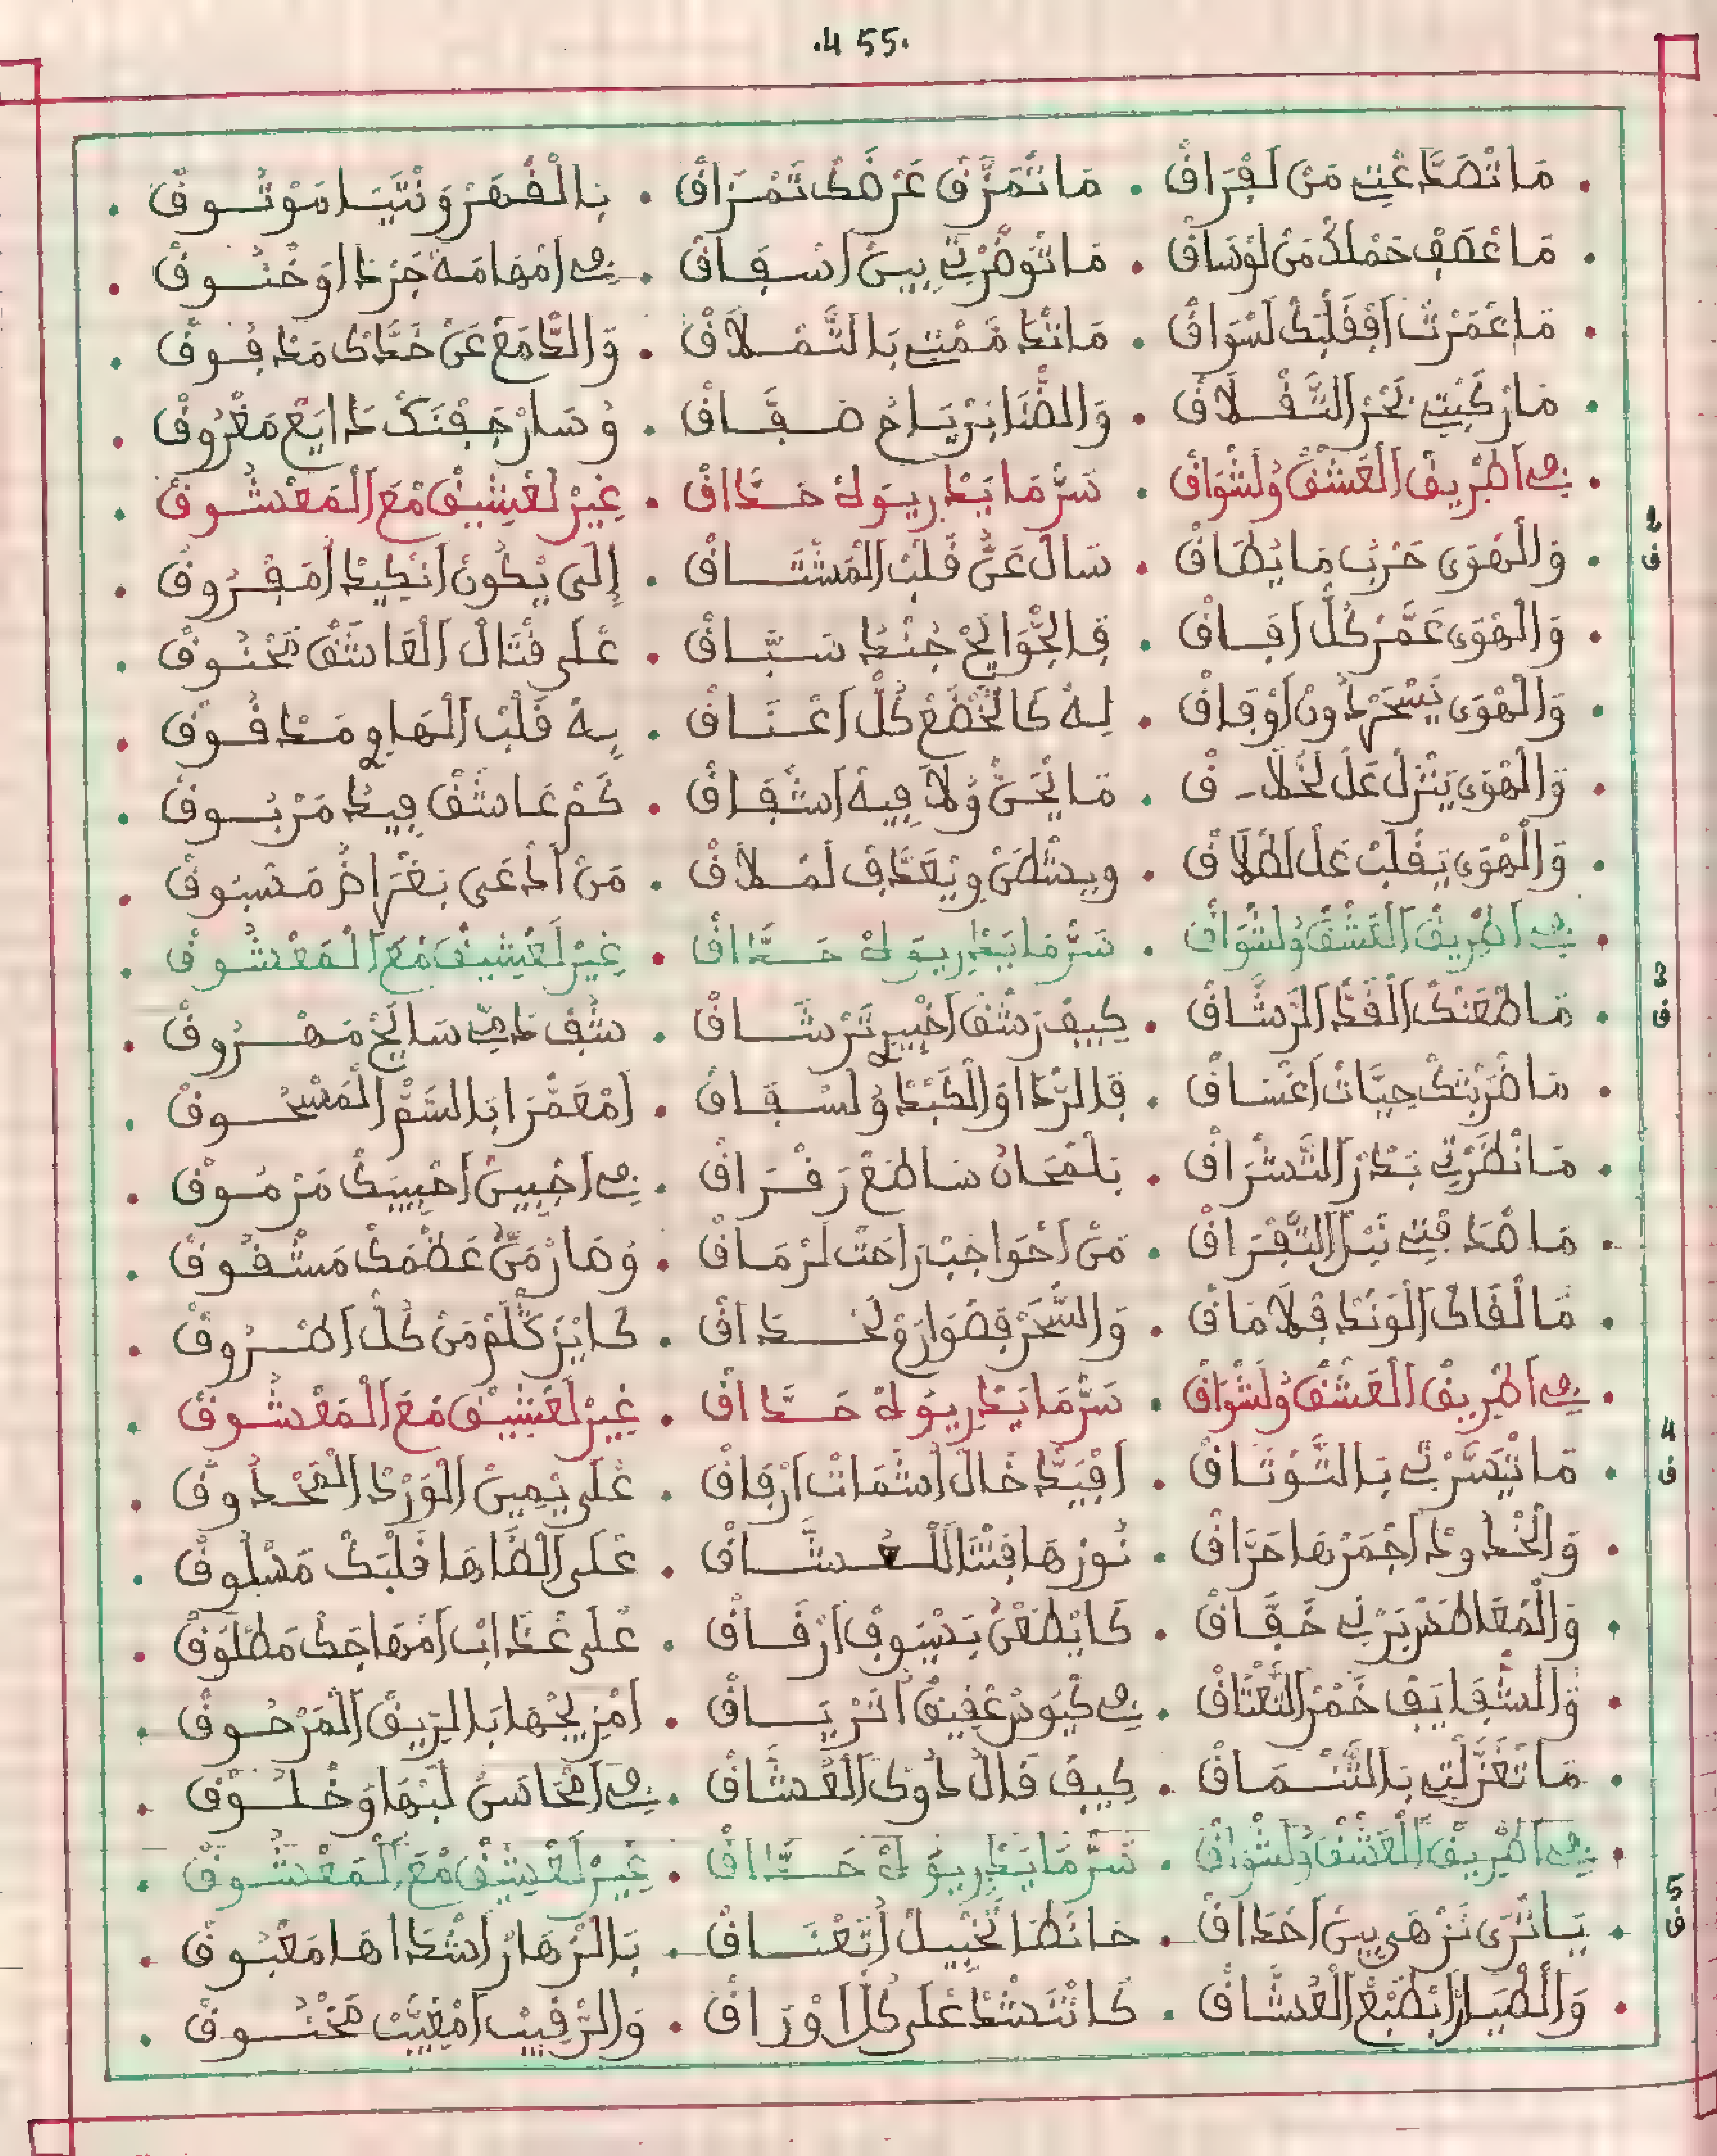 .455.
مَا تْصَدَّعْتِ مَنْ لَفْرَاقْ . مَا تْمَزَّقْ عَرْضَكْ تَمْزَاقْ . بِالْقْهَرْ وَنْتَيَا مَوْثُوقْ .
مَا عْصَفْ حَمْلَكْ مَنْ لَوْسَاقْ . مَا تْوَضَّرْتِي بِينْ اَسْفَاقْ . فِي اَمْهَامَهْ جَرْدَا وَخْنُوقْ .
مَا عَمْرَتْ اَفْقَلْبَكْ لَسْوَاقْ . مَا نْدَمَّمْتِ بَالتَّمْلاَقْ . وَالدَّمَعْ عَنْ خَدَّكْ مَدْفُوقْ .
مَا رْكَبْتِي بَحْرْ التَّقْلاَقْ . وَالضّْنَا بَرْيَاحْ صَفَّاقْ . وُ صَارْ جَفْنَكْ دَايَعْ مَغْرُوقْ .
فِي اَطْرِيقْ اَلْعَشْقْ وُلَشْوَاقْ . سَرّْ مَا يَدْرِيوَهْ حَدَّاقْ . غِيرْ لَعْشِيقْ مْعَ اَلْمَعْشُوقْ .
2 ف
وَالْهْوَى حَرْبْ مَا يْطَاقْ . سَالْ عَنُّ قَلْبْ اَلْمَشْتَاقْ . إِلَى يْكُونْ اَنْكِيدْ اَمَفْرُوقْ .
وَالْهْوَى عَمَّرْ كُلّْ اَفَاقْ . فَالْجْوَايَحْ جُنْدُ سَبَّاقْ . عْلَى قْتَالْ اَلْعَاشَقْ مَحْنُوقْ .
وَالْهْوَى يَسْحَرْ دُونْ اَوْفَاقْ . لِهْ كَا تَخْضَعْ كُلّْ اَعْنَاقْ . بِهْ قَلْبْ اَلْهَاوِي مَدْقُوقْ .
وَالْهْوَى يَنْزَلْ عَلْ لَخْلاَـ قْ . مَا يْحَنّْ وُلاَ فِيهْ اَشْفَاقْ . كَمْ عَاشَقْ فِيدُ مَرْبُوقْ .
وَالْهْوَى يَغْلَبْ عَلْ لَطْلاَقْ . وِيسْتْطَنْ وِيْعَدَّفْ لَمْلاَقْ . مَنْ اَدْعَى بَغْرَاضُ مَسْبُوقْ .
فِي اَطْرِيقْ اَلْعَشْقْ وُلَشْوَاقْ . سَرّْ مَا يَدْرِيوَهْ حَدَّاقْ . غِيرْ لَعْشِيقْ مْعَ اَلْمَعْشُوقْ .
3 ف
مَا طْعَنْكْ اَلْقَدّْ اَلرّْشَاقْ . كِيفْ رَشْقْ اَخْبِيرْ تَرْشَاقْ . شُفْ دَمِّي سَايَحْ مَهْرُوقْ .
مَا ضَرْبَتْكْ حِيَّاتْ اَغْسَاقْ . فَالرّْدَا وَالْكَبْدْ وُلَسْفَاقْ . اَمْعَمَّرَا بَالسَّمّْ اَلْمَسْحُوقْ .
مَا نْظَرْتِي بَدْرْ التَّشْرَاقْ . بَلَمْحَانُ سَاطَعْ رَقْرَاقْ . فِي اَجْبِينْ اَحْبِيبَكْ مَرْمُوقْ .
مَا هْدَفْتِي نَبْلْ اَلتَّفْرَاقْ . مَنْ اَحْوَاجَبْ رَاحَتْ لَرْمَاقْ . وُصَارْ مَنُّ عَظْمَكْ مَشْقُوقْ .
مَا لْقَاكْ اَلْوَنْدْ فْلاَمَاقْ . وَالسّْحَرْ فَصْوَارَمْ لَحْدَاقْ . كَا يْزَكْلَمْ مَنْ كُلّْ اَطْرُوقْ .
فِي اَطْرِيقْ اَلْعَشْقْ وُلَشْوَاقْ . سَرّْ مَا يَدْرِيوَهْ حَدَّاقْ . غِيرْ لَعْشِيقْ مْعَ اَلْمَعْشُوقْ .
4 ف
مَا تْيَسَّرْتِي بَالتَّوْثَاقْ . اَفْيَدّْ خَالْ اَشْمَاتْ اَرْقَاقْ . عْلَى يْمِينْ اَلْوَرْدْ اَلْمَحْدُوقْ .
وَالْخْدُودْ اَجْمَرْهَا حَرَّاقْ . نُورْهَا فْتْنَا لَلْعُشَّاقْ . عْلَى اَلْظَاهَا قَلْبَكْ مَسْلُوقْ .
وَالْمْعَاطَسْ بَرْنِي خَفَّاقْ . كَا يْطْعَنْ بَسْيُوفْ اَرْقَاقْ . عْلَى عْذَابْ اَمْهَاجَكْ مَطْلُوقْ .
وَالشّْفَايَفْ خَمْرْ التَّعْتَاقْ . فِي كْيُوسْ عْقِيقْ اَتَرْيَاقْ . اَمْزِيجْهَا بَالرِّيقْ اَلْمَرْحُوقْ .
مَا تْغَزَّلْتِي بَالتَّنْمَاقْ . كِيفْ قَالْ دُوكْ اَلْعُشَّاقْ . فِي اَمْحَاسَنْ لَبْهَا وَخْلُوقْ .
فِي اَطْرِيقْ اَلْعَشْقْ وُلَشْوَاقْ . سَرّْ مَا يَدْرِيوَهْ حَدَّاقْ . غِيرْ لَعْشِيقْ مْعَ اَلْمَعْشُوقْ .
5 ف
يَا تْرَى نَزْهَى بِينْ اَحْدَاقْ . حَانْطَا تَخْبِيلْ اَتَعْنَاقْ . بَالزّْهَارْ اَشْدَاهَا مَعْبُوقْ .
وَالطّْيَارْ اَبْطَبْعْ اَلْعُشَّاقْ . كَا تْنَشَّدْ عْلَى كُلّْ اَوْرَاقْ . وَالرّْقِيبْ اَمْغَيَّبْ مَخْنُوقْ .